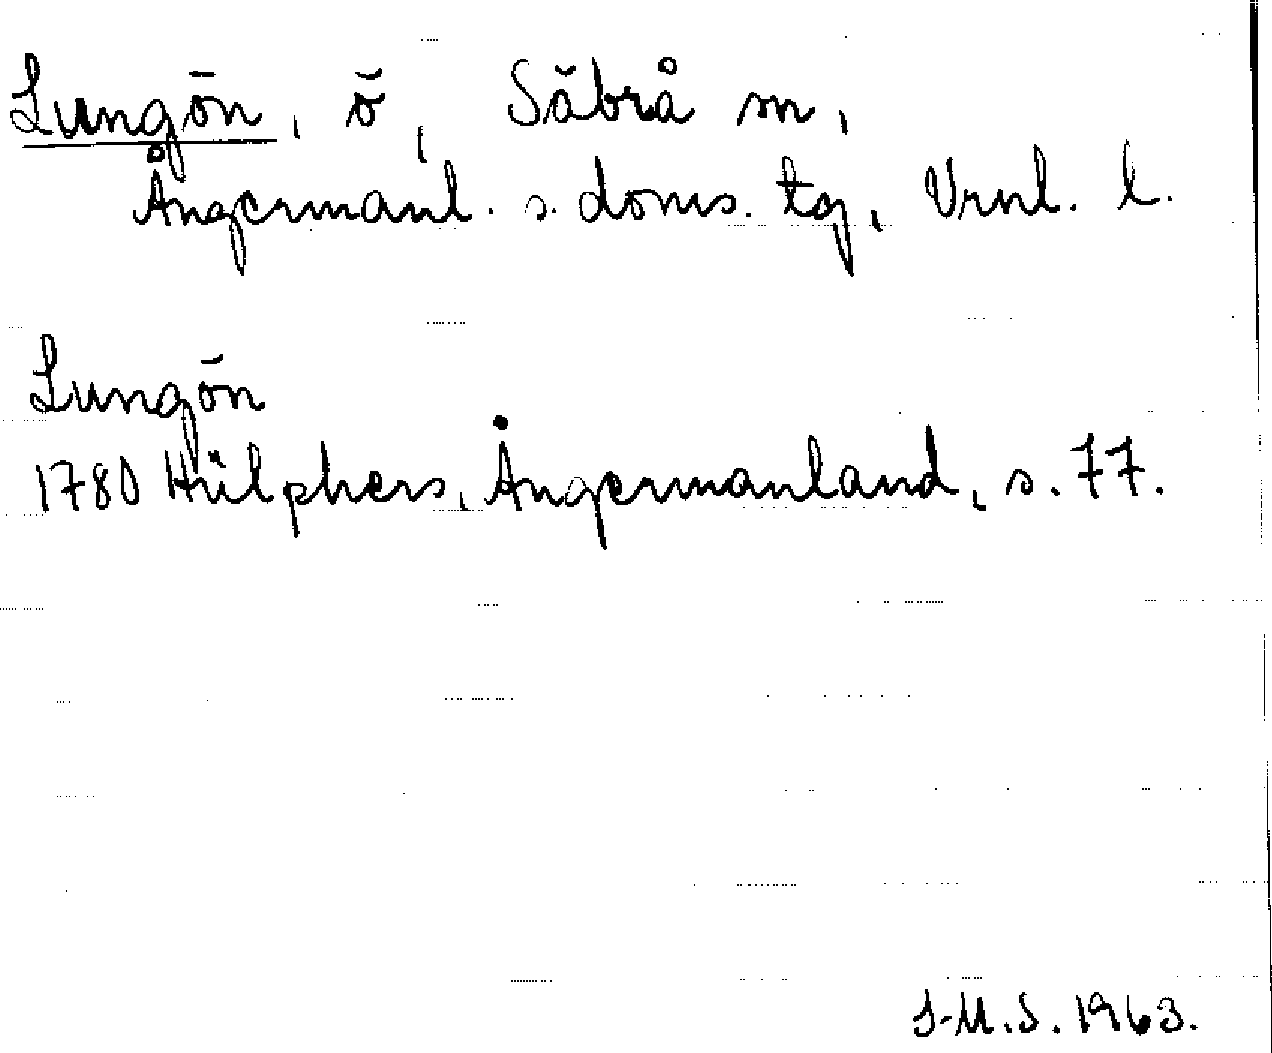 Lungön, ö, Säbrå sn,
Ångermanl. s. doms. tg, Vrnl. l.
Lungön
1780 Hülphers, Ångermanland, s. 77.
I-M.S. 1963.